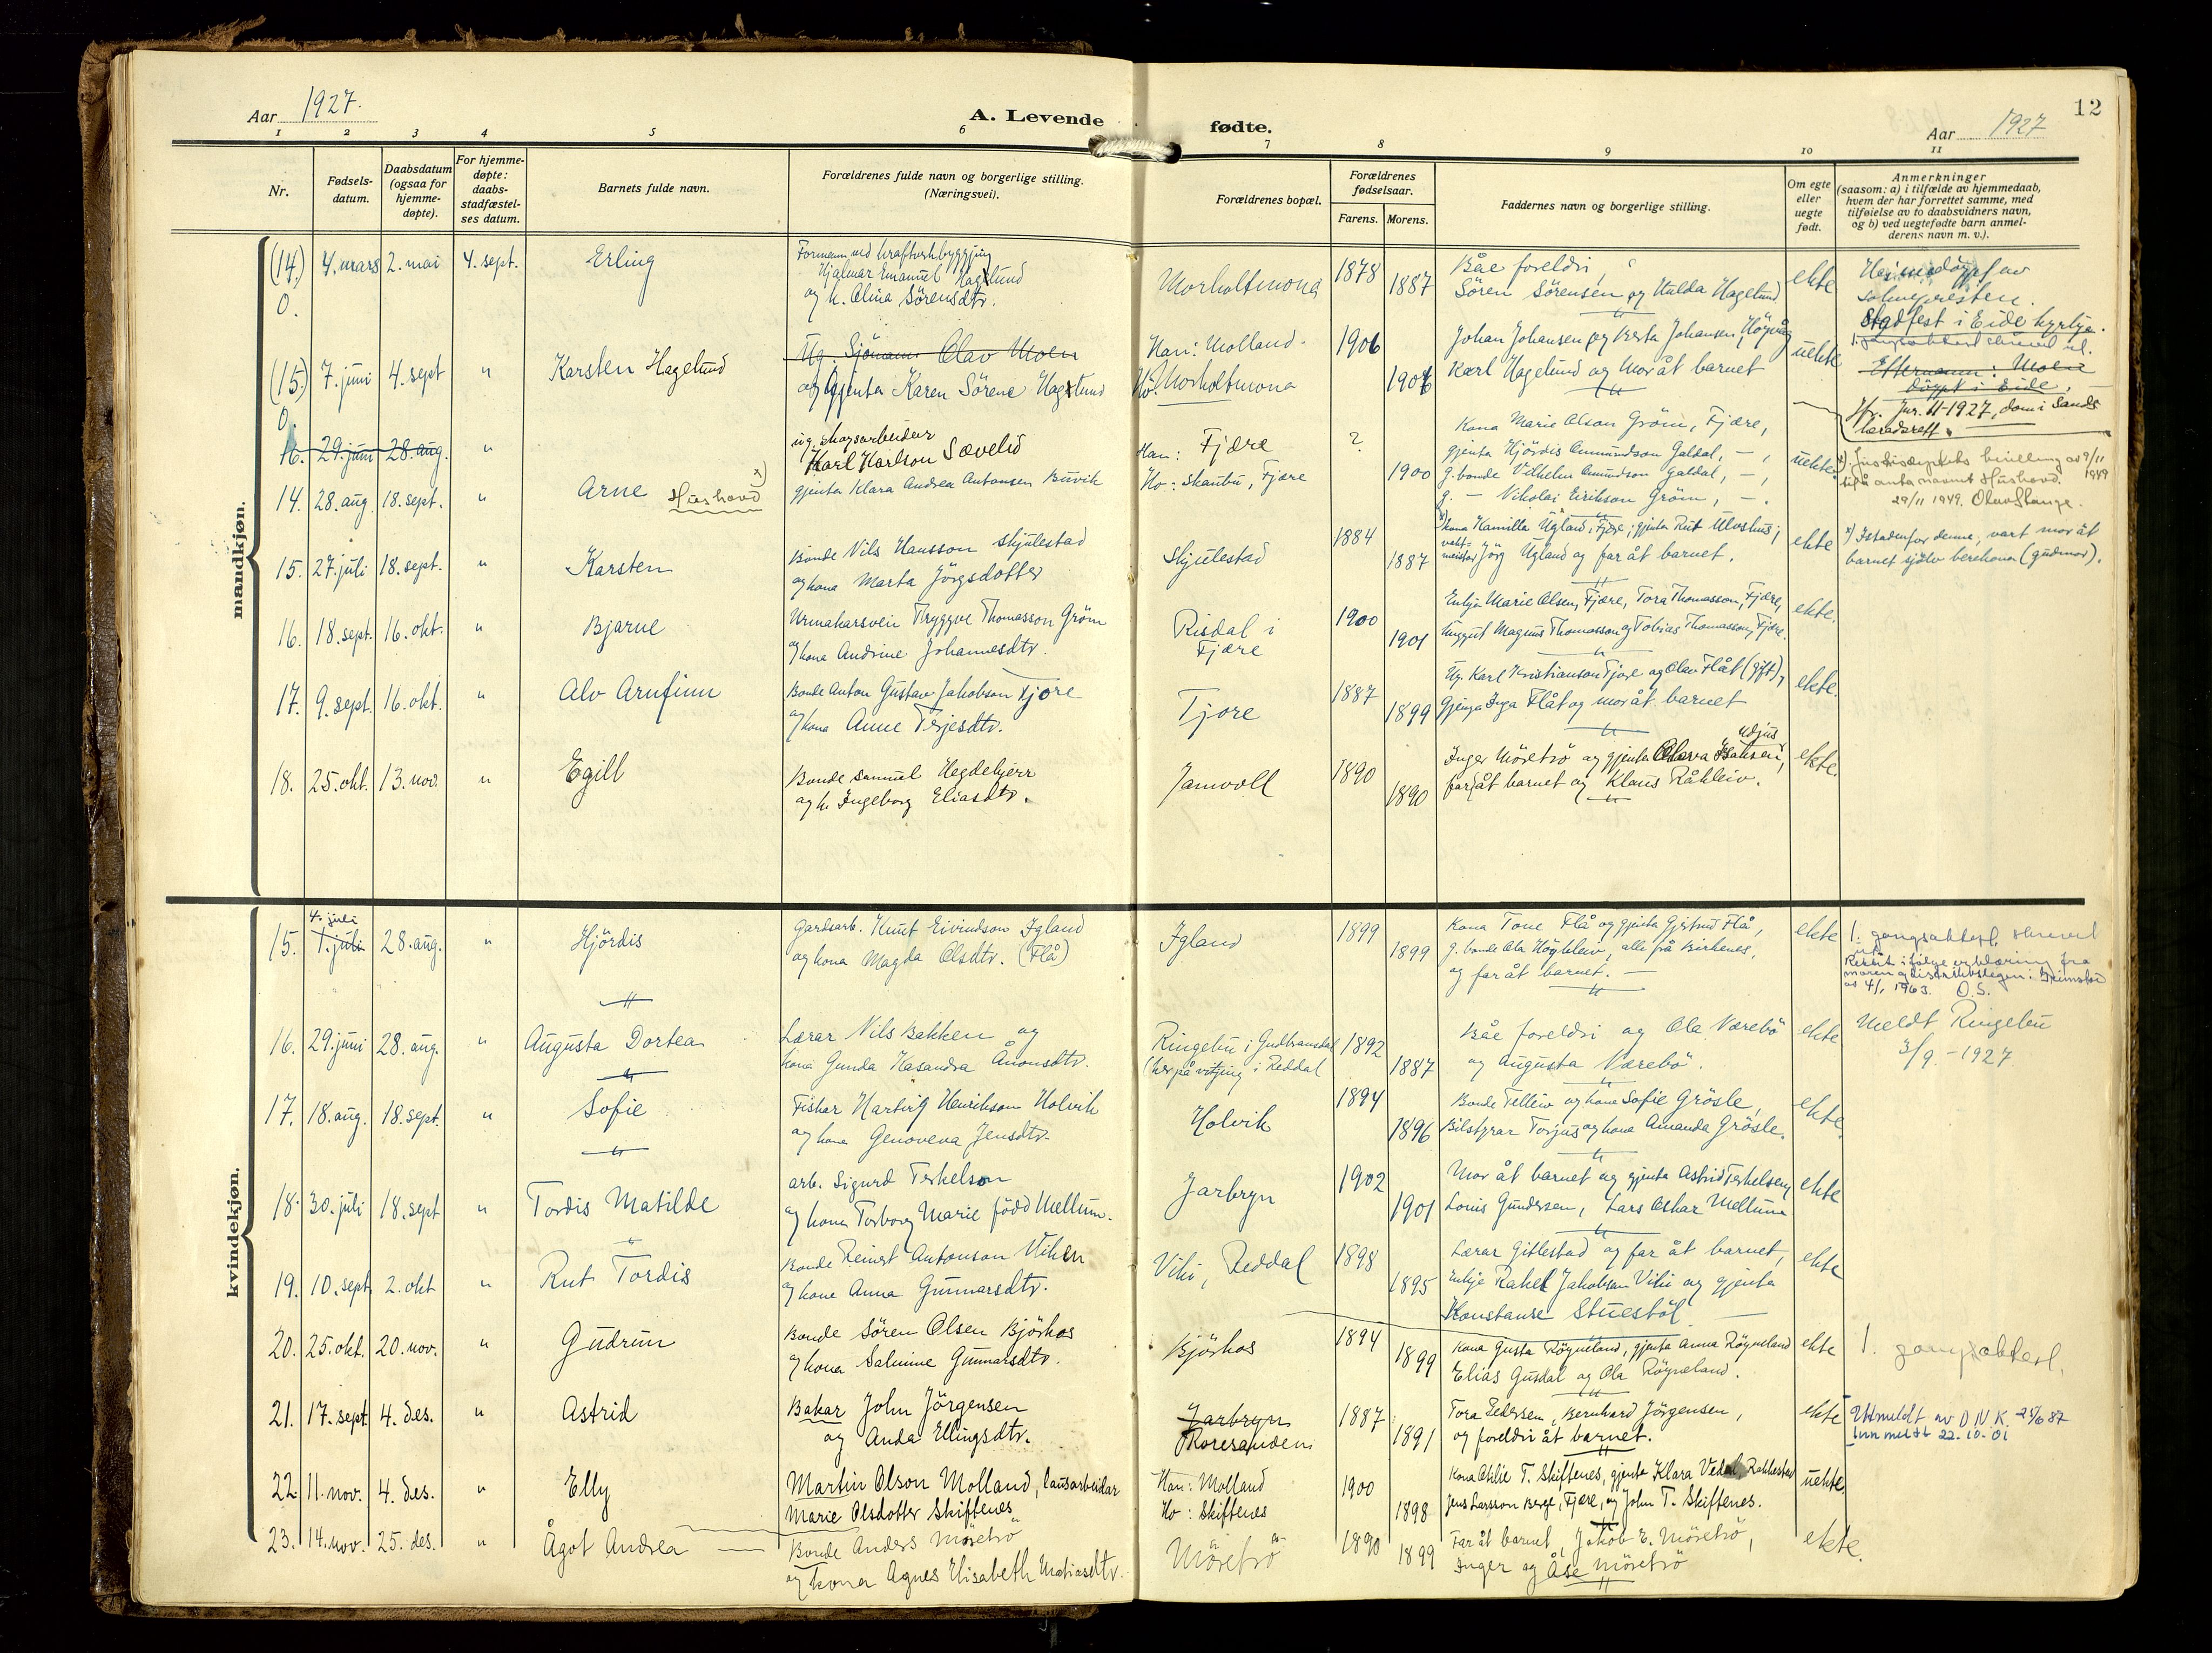 Aar 1927.
A. Levende
fødte.
Aar 1927
12
1 2 3 4 5 6 7 8 9 10 11
Nr.
Fødsels-
datum.
Daabsdatum
(ogsaa for
hjemme-
døpte).
For hjemme-
døpte:
daabs-
stadfæstel-
ses datum.
Barnets fulde navn.
Forældrenes fulde navn og borgerlige stilling.
(Næringsvei).
Forældrenes bopæl.
Forældrenes
fødselsaar.
Farens. Morens.
Faddernes navn og borgerlige stilling.
Om egte
eller
uegte
født.
Anmerkninger
(saasom: a) i tilfælde av hjemmedaab,
hvem der har forrettet samme, med
tilføielse av to daabsvidners navn,
og b) ved uegtefødte barn anmel-
derens navn m. v.).
mandkjøn.
(14.) 4. mars 2. mai 4. sept. Erling
0.
Formann ved kraftverkbyggjing
Hjalmar Emanuel Hagelund
og k. Alina Sörensdtr.
Morholtmona 1878 1887
Båe foreldri,
Sören Sörensen og Hulda Hagelund
ekte
Heimedöypt av
soknepresten.
Stadfest i Eide kyrkje.
(15.) 7. juni 4. sept " Karsten Hagelund
0.
Ug. Sjömann Olav Moen
og gjenta Karen Sörene Hagelund
Han: Molland.
Ho: Morholtmona
1906 1906
Johan Johansen og Berta Johansen, Högvåg
Karl Hagelund og mor åt barnet
uekte
Eftermann: Moen
döypt i Eide.
Jfr. Jnr. 11-1927, dom i Sands
heradsrett.
16. 29. juni 28. aug. "
14. 28. aug 18. sept. " Arne Hushovd x)
ug. skogsarbeider
Karl Karlson Sævelid
gjenta Klara Andrea Antonsen Buvik
Han: Fjære
Ho: Skaubu, Fjære
? 1900
Kona Marie Olson Gröm, Fjære,
gjenta Hjördis Amundson Galdal, - ,
g. bonde Vilhelm Amundson Galdal, - ,
g. - Nikolai Eirikson Gröm, - .
uekte
x) Justisdepartets bevilling av 9/11 1949
til å anta navnet Hushovd.
29/11 1949. Olav Stange.
15. 27. juli 18. sept. " Karsten
Bonde Nils Hansson Skjulestad
og kona Marta Jörgsdotter
Skjulestad
1884 1887
x) Kona Kamilla Ugland, Fjære; gjenta Rut Ulvshus;
vakt-
meistar Jörg Ugland og far åt barnet.
ekte
x) Istadenfor denne, vart mor åt
barnet sjölv berekona (gudmor).
16. 18. sept. 16. okt. " Bjarne
Urmakarsvein Tryggve Thomasson Gröm
og kona Andrine Johannesdtr.
Risdal i
Fjære
1900 1901
Enkja Marie Olsen, Fjære, Tora Thomasson, Fjære,
Unggut Magnus Thomasson og Tobias Thomasson, Fjære.
ekte.
17. 9. sept. 16. okt. " Alv Arnfinn
Bonde Anton Gustav Jakobson Tjore
og kona Anne Terjesdtr.
Tjore
1887 1899
Ug. Karl Kristianson Tjore og Olav Flåt (gift),
Gjenta Inga Flåt og mor åt barnet
ekte.
18. 25. okt. 13. nov. " Egill
Bonde Samuel Hegdekjerr
og k. Ingeborg Eliasdtr.
Jamvoll
1890 1890
Inger Möretrö og gjenta Olava
far åt barnet og Klaus Råkleiv.
ekte.
kvindekjøn.
15. 4. juli 1. juli 28. aug. " Hjördis
Gardsarb. Knut Eivindson Igland
og kona Magda Olsdtr. (Flå)
Igland
1899 1899
Kona Tone Flå og gjenta Gjertrud Flå,
g. bonde Ola Högkleiv, alle frå Birkenes,
og far åt barnet. -
ekte
1. gangsattest skrevet
ut.
Rettet ifölge erklæring fra
moren og distriktslegen i Grimstad
av 4/1 1963. O.S.
16. 29. juni 28. aug. " Augusta Dortea
Lærar Nils Bakken og
kona Gunda Kasandra Ånonsdtr.
Ringebu i Gudbransdal
(her på vitjing i Reddal
1892 1887
Båe foreldri og Ola Værebö
og Augusta Værebö.
ekte
Meldt Ringebu
3/9 - 1927.
17. 18. aug. 18. sept. " Sofie
Fiskar Hartvig Henrikson Holvik
og kona Genoveva Jensdtr.
Holvik
1894 1896
Bonde Telleiv og kona Sofie Grösle,
Bilstyrar Torjus og kona Amanda Grösle.
ekte.
18. 30. juli 18. sept " Tordis Matilde
arb. Sigurd Terkelson
og kona Torborg Marie född Mellum.
Jarbryn
1902 1901
Mor åt barnet og gjenta Astrid Terkelsen,
Louis Gundersen, Lars Oskar Mellum
ekte
19. 10. sept 2. okt " Rut Tordis
Bonde Reinert Antonson Viken
og kone Anna Gunnarsdtr.
Viki, Reddal
1898 1895
Lærar Gitlestad og far åt barnet,
Enkje Rakel Jakobson Viki og gjenta
Konstanse Stuestöl
ekte
20. 25. okt. 20. nov. " Gudrun
Bonde Sören Olsen Björkos
og kona Salmine Gunnarsdtr.
Björkos
1894 1899
Kona Gusta Röyneland, gjenta Anna Röyneland
Elias Gusdal og Ola Röyneland.
ekte
1. gangsattest.
21. 17. sept 4. des. " Astrid
Bakar John Jörgensen
og Anda Ellingsdtr.
Jarbryn
Roresanden
1887 1891
Tora Pedersen, Bernhard Jörgensen,
og foreldri åt barnet.
ekte
Utmeldt av D N K. 25/6 87
Innmeldt 22-10-01
22. 11. nov. 4. des. " Elly
Martin Olson Molland, lausarbeidar
Marie Olsdotter Skiftenes
Han: Molland
Ho: Skiftenes
1900 1898
Kona Otilie T. Skiftenes, gjenta Klara Rakkestad
Jens Larsson Berge, Fjære, og John T. Skiftenes.
uekte.
23. 14. nov. 25. des. " Ågot Andrea
Bonde Anders Möretrö
og kona Agnes Elisabeth Matiasdtr.
Möretrö
1890 1899
Far åt barnet, Jakob E. Möretrö,
Inger og Åse Möretrö
ekte.